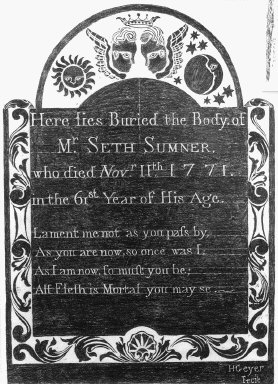 Here lies Buried the Body of
Mr. SETH SUMNER,
who died Novr. 11th. 1771.
in the 61st Year of His Age.
Lament me not as you paſs by,
As you are now, so once was I,
As I am now, ſo must you be;
All Fleſh is Mortal you may se
H Geyer
Fecit